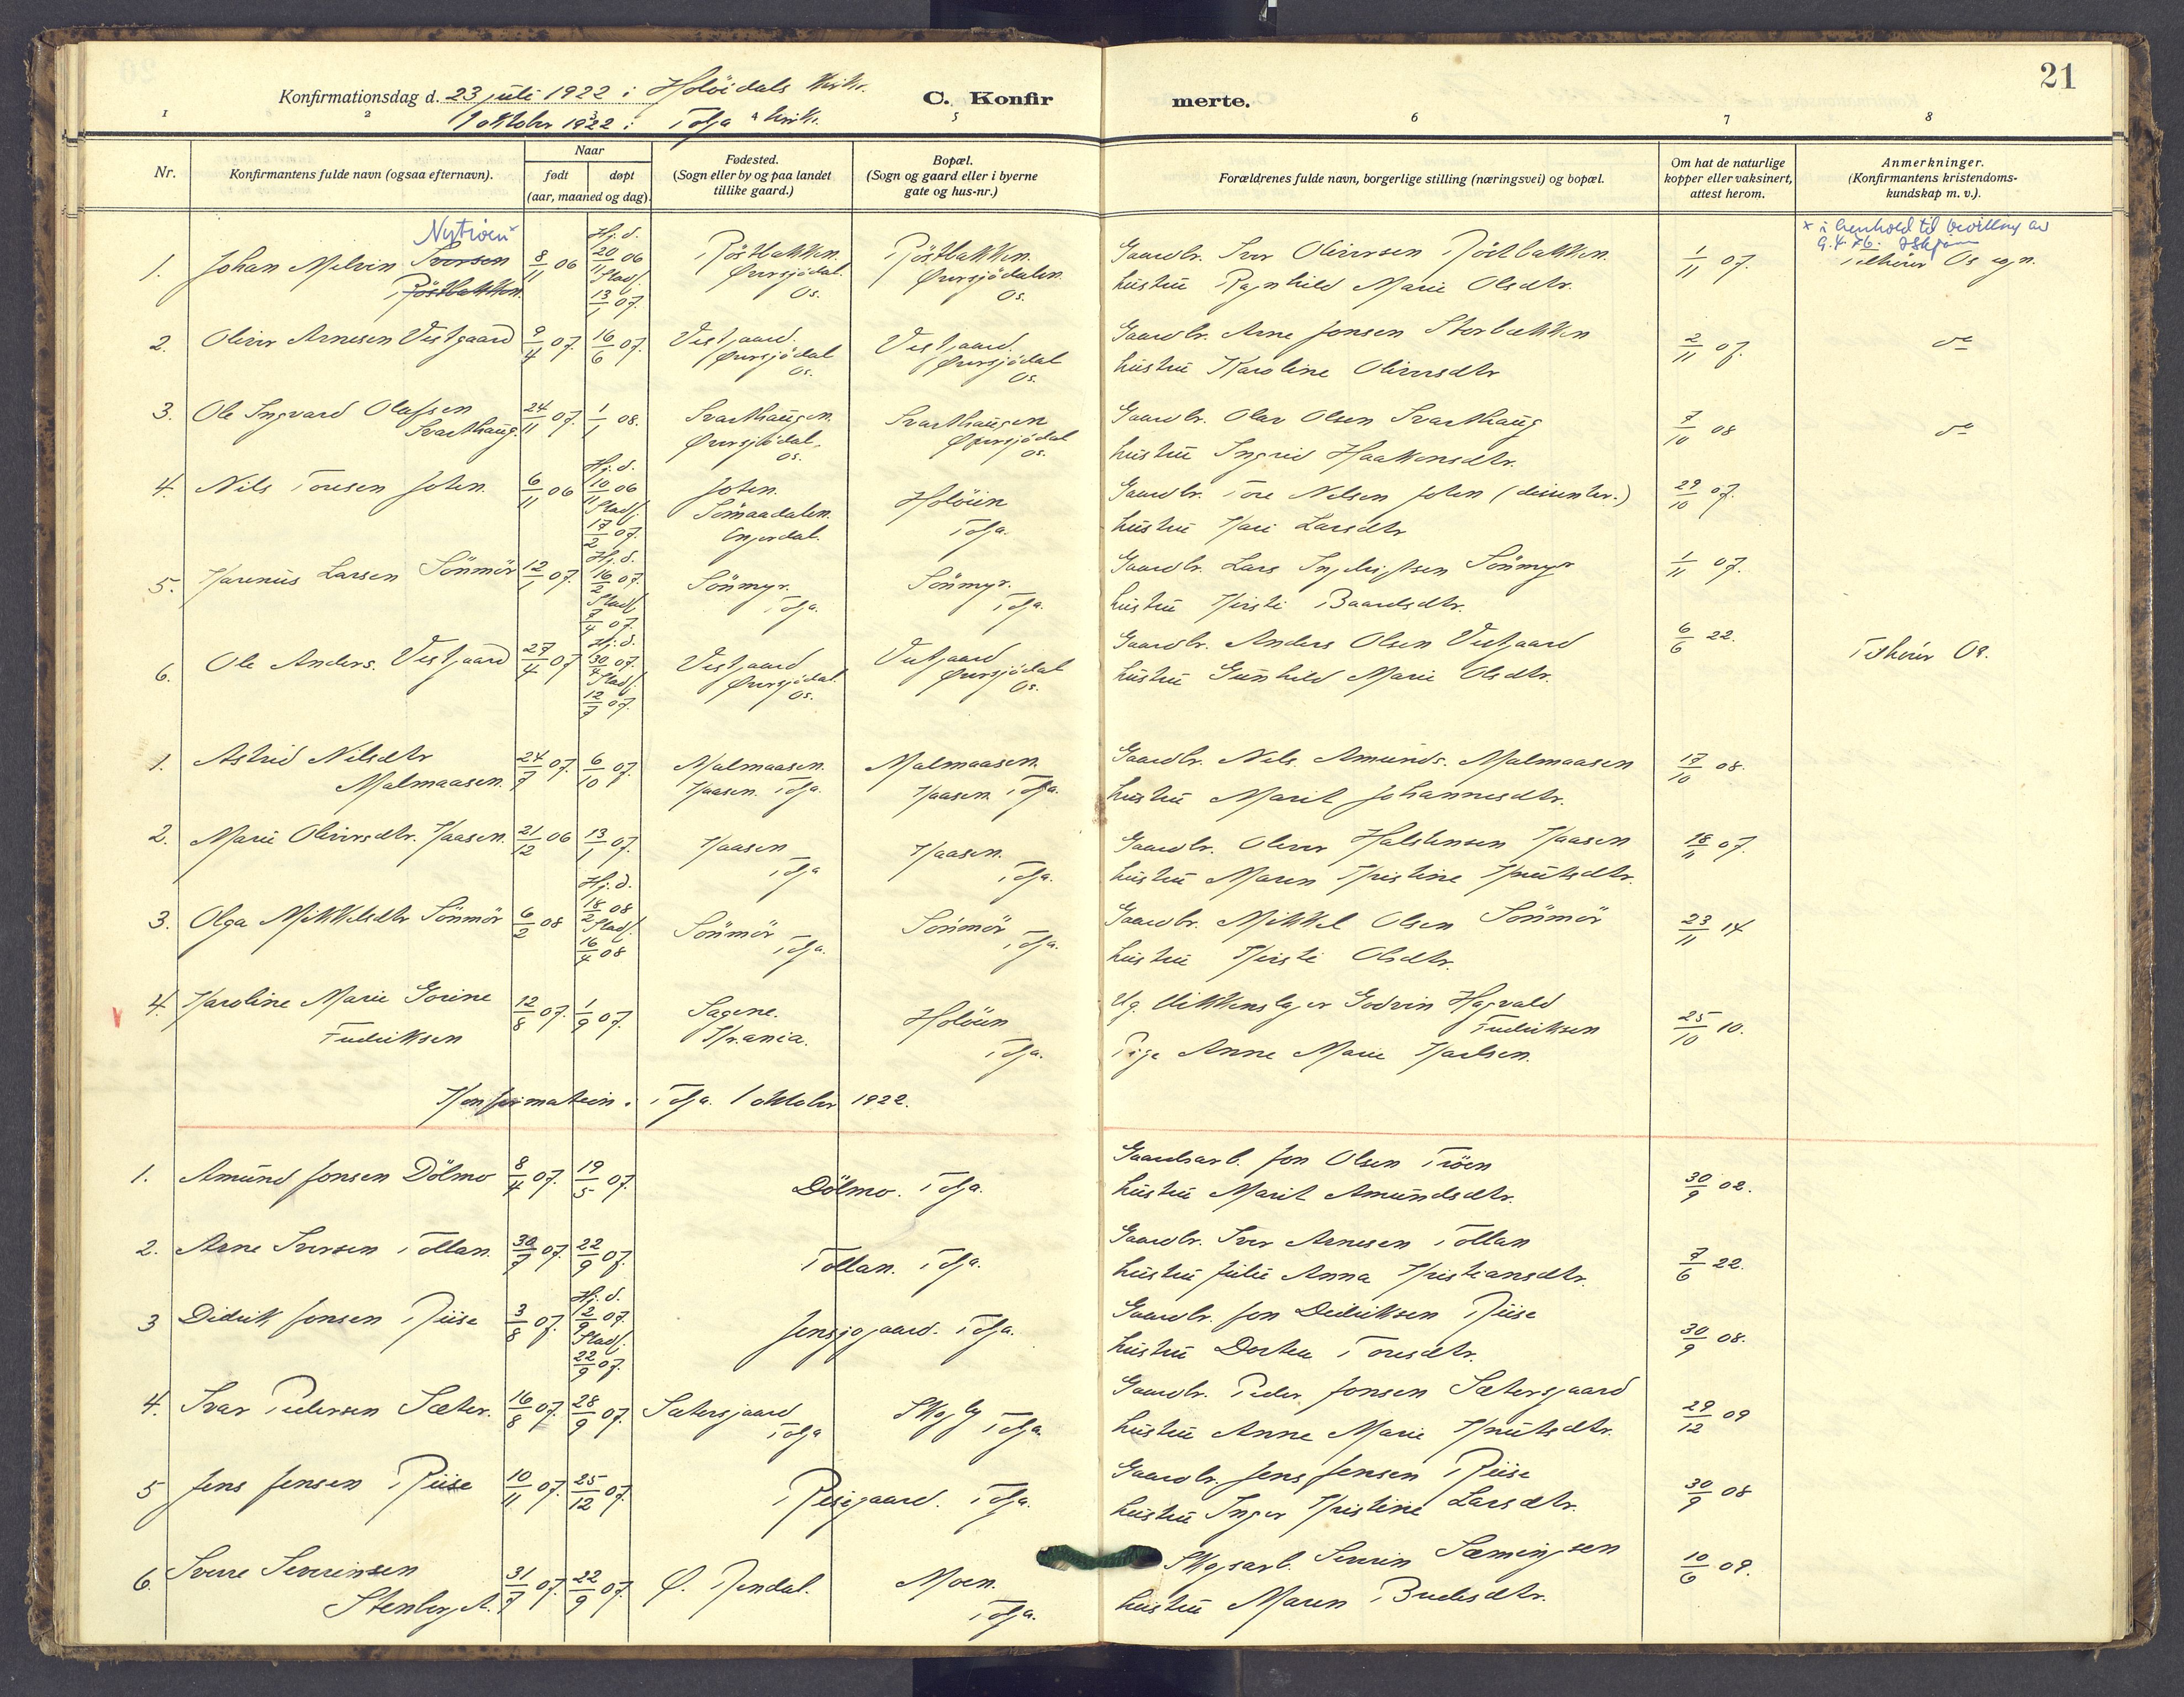 21
Konfirmationsdag d. 23 juli 1922 i Holöidals kirke.
1 oktober 1922 i Tolga kirke.
C. Konfirmerte.
1 2 3 4 5 6 7 8
Nr. Konfirmantens fulde navn (ogsaa efternavn). Naar født døpt (aar, maaned og dag). Fødested. (Sogn eller by og paa landet tillike gaard.) Bopæl. (Sogn og gaard eller i byerne gate og hus-nr.) Forældrenes fulde navn, borgerlige stilling (næringsvei) og bopæl. Om hat de naturlige kopper eller vaksinert, attest herom. Anmerkninger. (Konfirmantens kristendoms-kundskap m. v.).
Nytrøen x
x i henhold til bevilling av
9.4.26.
1. Johan Melvin Iversen 8/11 06 Hj. d. 20/11 06 Röstbakken. Röstbakken. Gaardbr. Iver Oliversen Röstbakken. 1/11 07. Tilhører Os sogn.
Röstbakken. Stadf. 13/1 07. Øversjödal. Os. Øversjödalen. Os. hustru Ragnhild Marie Olsdtr.
2. Oliver Arnesen Vestgaard 9/4 07. 16/6 07. Vestgaard. Øversjödal Os. Vestgaard. Øversjödal Os. Gaardbr. Arne Jonsen Storbækken 2/11 07. do
hustru Karoline Oliversdtr
3. Ole Ingvard Olafsen 24/11 07. 1/1 08. Svarthaugen. Øversjödal. Os. Svarthaugen Øversjödal Os. Gaardbr. Olav Olsen Svarthaug 7/10 08 do
Svarthaug. hustru Ingrid Haakensdtr.
4. Nils Toresen Joten. 6/11 06 Hj. d. 10/11 06 Stadf. 17/2 07. Joten. Sömaadalen. Engerdal. Holöien Tolga. Gaardbr. Tore Nilsen Joten (dissenter.) 29/10 07.
hustru Kari Larsdtr
5. Karenius Larsen Sönmör 12/1 07. Hj. d. 16/2 07. Stadf. 7/4 07. Sönmyr. Tolga. Sönmyr. Tolga. Gaardbr. Lars Ingebrigtsen Sönmyr 1/11 07.
hustru Kirsti Baardsdtr.
6. Ole Anders. Vestgaard 27/4 07 Hj. d. 30/4 07. Stadf. 12/7 07. Vestgaard Øversjödal. Os. Vestgaard Øversjödal Os. Gaardbr. Anders Olsen Vestgaard 6/6 22. Tilhører Os.
hustru Gunhild Marie Olsdtr.
1. Astrid Nilsdtr 24/7 07. 6/10 07. Malmaasen. Kaasen. Tolga. Malmaasen. Kaasen. Tolga. Gaardbr. Nils Amunds. Malmaasen 17/10 08.
Malmaasen. hustru Marit Johannesdtr.
2. Marie Oliversdtr. Kaasen. 21/12 06 13/1 07. Kaasen Tolga Kaasen. Tolga. Gaardbr. Oliver Halstensen Kaasen 18/11 07.
hustru Maren Kristine Knutsdtr.
3. Olga Mikkelsdtr Sönmör 6/2 08 Hj. d. 18/2 08 Stadf. 16/4 08 Sönmör Tolga. Sönmör Tolga. Gaardbr. Mikkel Olsen Sönmör 23/11 14
hustru Kirsti Olsdtr.
4. Karoline Marie Gorine 12/8 07. 1/9 07. Sagene. Kr.ania. Holöien Tolga. Ug. Godvin Hagvald 25/10 10.
Fredriksen Fredriksen
Pige Anne Marie Karlsen.
Konfirmation i Tolga 1 oktober 1922.
1. Amund Jonsen Dölmo 8/4 07. 19/5 07. Dölmo. Tolga. Gaardsarb. Jon Olsen Trøen 30/9 02.
hustru Marit Amundsdtr.
2. Arne Iversen Tollan. 30/7 07. 22/9 07. Tollan. Tolga. Gaardbr. Iver Arnesen Tollan 7/6 22.
hustru Julie Anna Kristiansdtr.
3 Didrik Jonsen Riise 3/8 07. Hj. d. 2/9 07. Stadf. 22/9 07. Jensgjogaard. Tolga. Gaardbr. Jon Didriksen Riise 30/9 08.
hustru Dortea Toresdtr.
4. Ivar Pedersen Sæter. 16/8 07. 28/9 07. Sætersgaard Tolga Skogly Tolga. Gaardbr. Peder Jonsen Sætersgaard 29/12 09
hustru Anne Marie Knutsdtr.
5 Jens Jensen Riise 10/11 07. 25/12 07. Riisegaard. Tolga. Gaardbr. Jens Jensen Riise 30/9 08
hustru Inger Kristine Larsdtr.
6. Sverre Severinsen 31/7 07. 22/9 07. Ø. Rendal. Moen. Tolga. Skogsarb. Severin Sæmingsen 10/6 09.
Stenberg A. hustru Maren Bredesdtr.